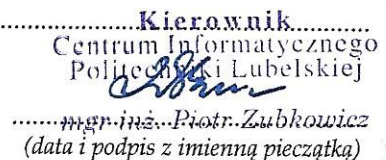 Kierownik
Centrum Informatycznego
Politechniki Lubelskiej
mgr inż. Piotr Zubkowicz
(data i podpis z imienną pieczątką)